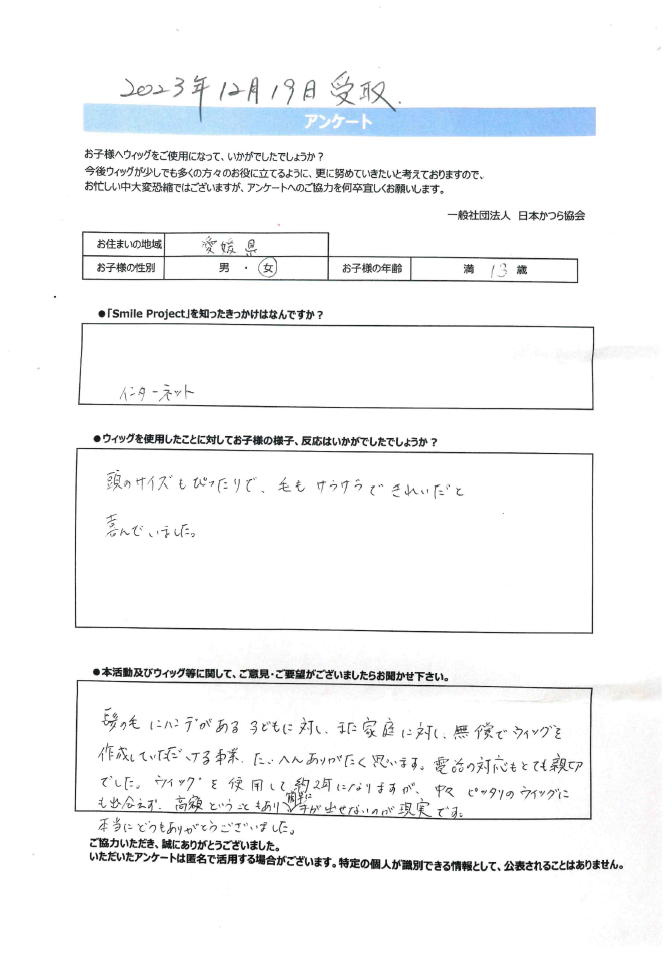 2023年12月19日受取.
アンケート
お子様へウィッグをご使用になって、いかがでしたでしょうか？
今後ウィッグが少しでも多くの方々のお役に立てるように、更に努めていきたいと考えておりますので、
お忙しい中大変恐縮ではございますが、アンケートへのご協力を何卒宜しくお願いします。
一般社団法人 日本かつら協会
お住まいの地域 愛媛県
お子様の性別 男 ・ 女 お子様の年齢 満 13 歳
●「Smile Project」を知ったきっかけはなんですか？
インターネット
●ウィッグを使用したことに対してお子様の様子、反応はいかがでしたでしょうか？
頭のサイズもぴったりで、毛もサラサラできれいだと
喜んでいました。
●本活動及びウィッグ等に関して、ご意見・ご要望がございましたらお聞かせ下さい。
髪の毛にハンデがある子どもに対し、また家庭に対し、無償でウィッグを
作成していただける事業、たいへんありがたく思います。電話の対応もとても親切
でした。ウィッグを使用して約2年になりますが、中々ピッタリのウィッグに
も出会えず、高額ということもあり簡単に手が出せないのが現実です。
本当にどうもありがとうございました。
ご協力いただき、誠にありがとうございました。
いただいたアンケートは匿名で活用する場合がございます。特定の個人が識別できる情報として、公表されることはありません。